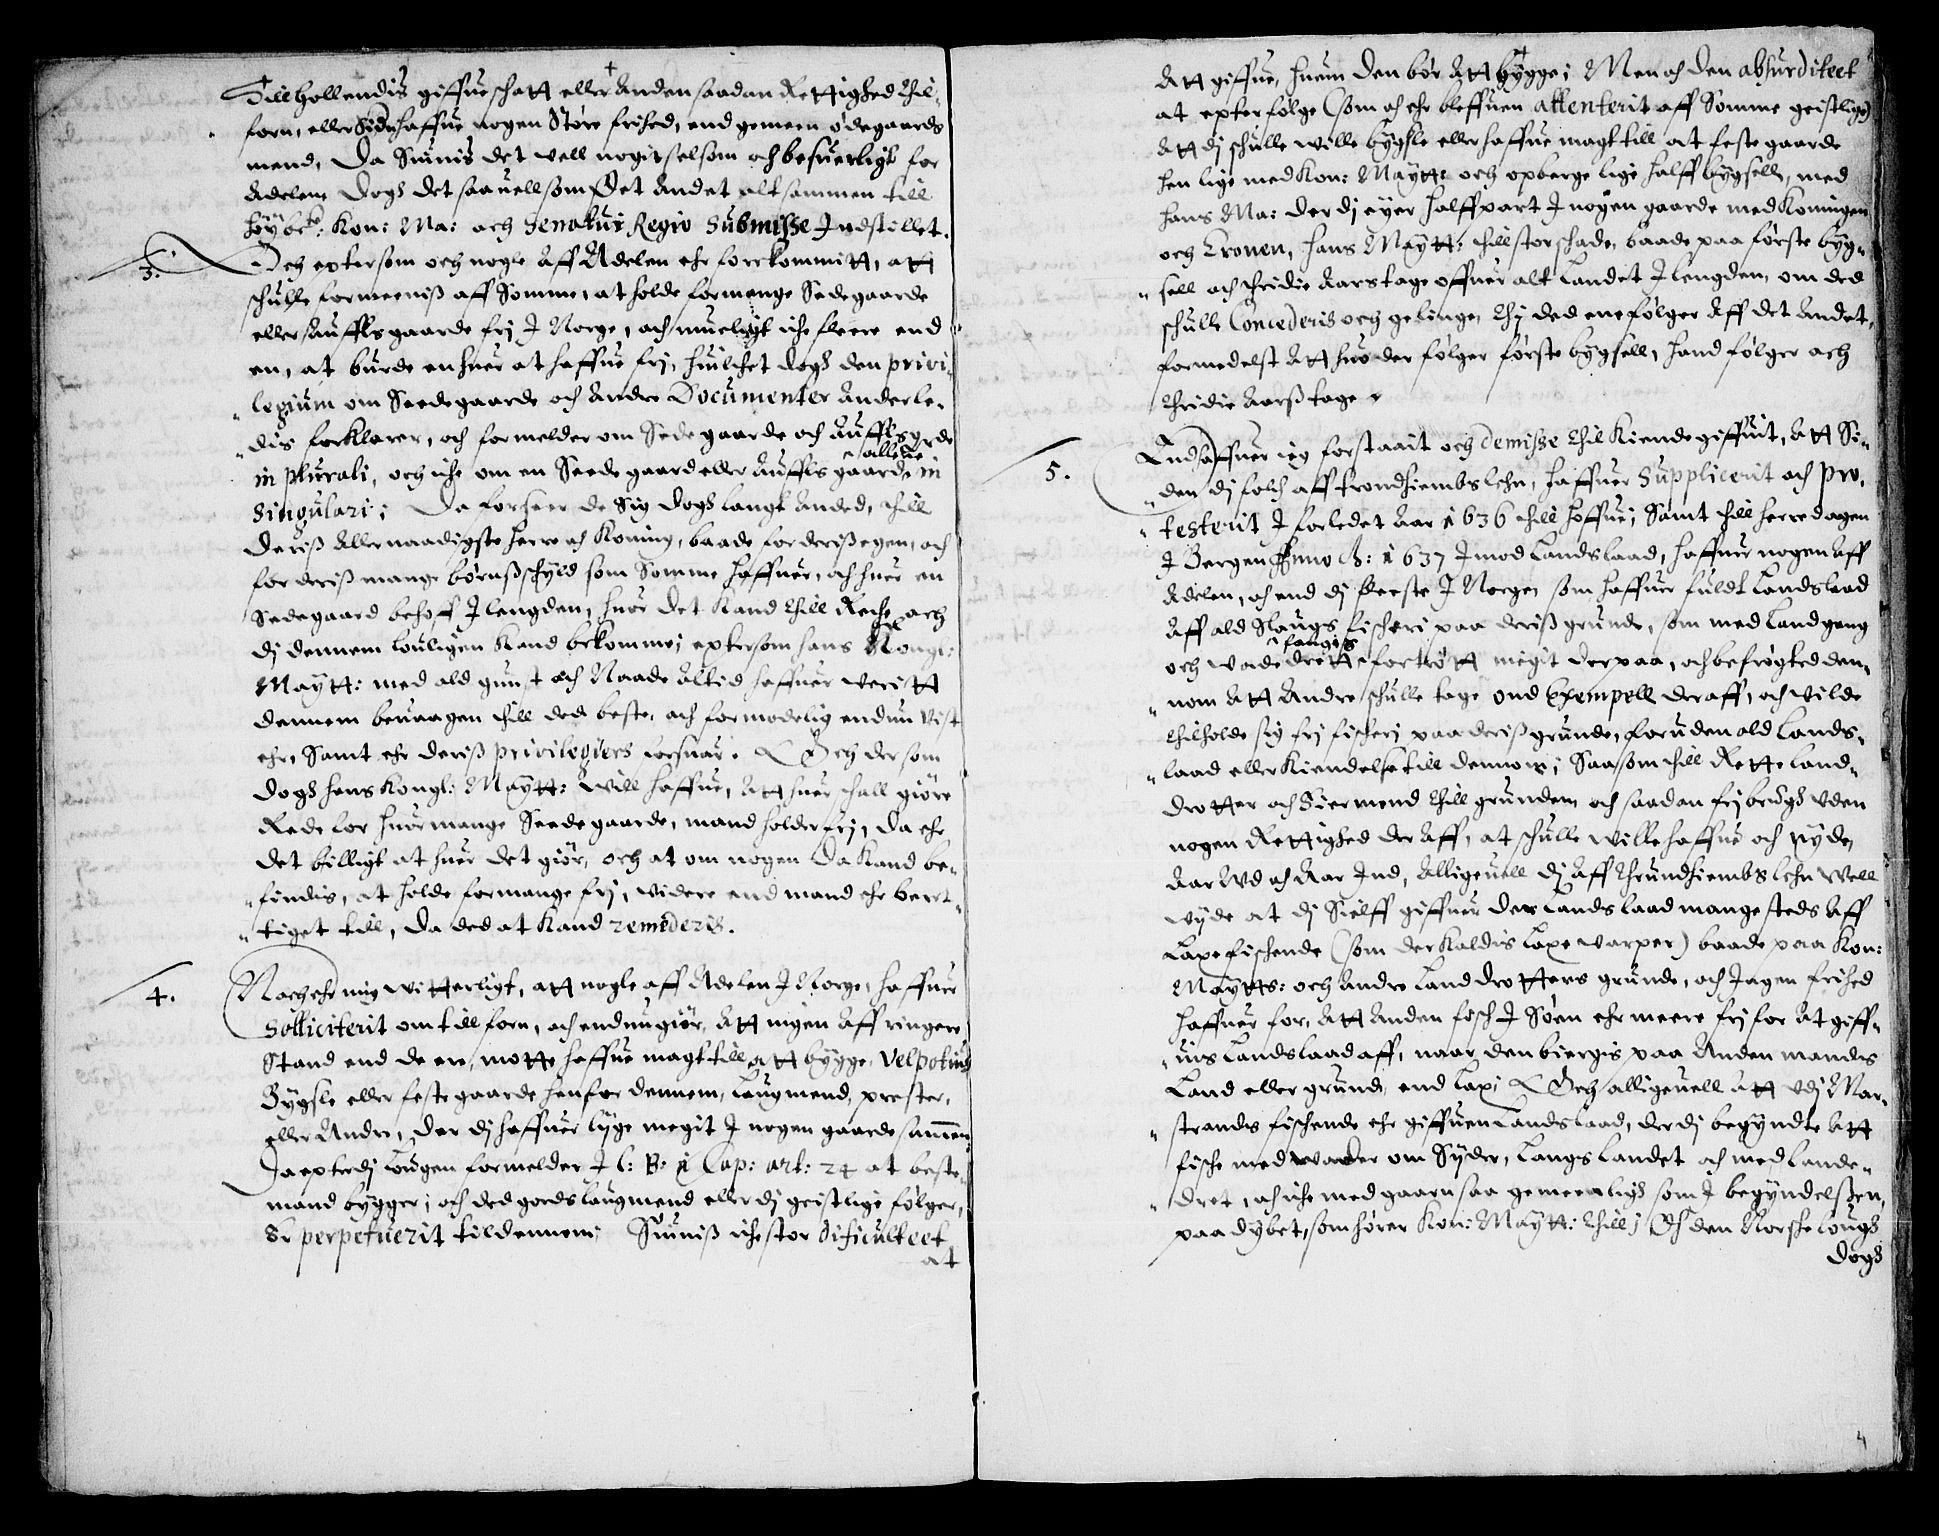 Till Hollendis giffue schatt eller Anden saadan Rettighed thil-
forn, eller Siden haffue nogen Støre frihed, end gemeen ødegaards
mend, Da Siunis det vell nogit selsom och besuerligt for
Adelen, Dogh det saauell som Det Andet altsammen till
høybte: Kon: Ma: och Senatui Regio Submisse Indstillet.
3.
Och eptersom och nogle Aff Adelen ehr forekommitt, att
schulle formeeniss aff Somme, at holde formange Sedegaarde
eller Auffls gaarde frj I Norge, och mueligt iche fleere end
en, at burde en huer at haffue frj, huilchet dogh den privi-
legium om Seedegaarde och Andre Documenter Anderle-
dis forklarer, och formelder om Sedegaarde och Aufflsgrde
in plurali, och iche om en Seedegaard eller Auffls gaarde allene in
Singulari; Da forseer de Sig dogh langt Anded, thill
Deriss Allernaadigste Herre och Koning, baade for deriss egen, och
for deriss mange børnss schyld som Somme haffuer, och huer en
Sedegaard behoff I lengden, huor det Kand thill Reche, och
dj dennem louligen Kand bekomme; eptersom hans Kongl:
Maytt: med ald gunst och Naade Altid haffuer veritt
dennem beuaagen thill ded beste, och formodelig endnu vist
ehr, Samt ehr deriss privilegiers forsuar. Och dersom
dogh hans Kongl: Maytt: will haffue, Att huer schall giøre
Rede for huormange Seedegaarde, mand holder frj, da ehr
det billigt at huer det giør, och at om nogen da Kand be-
findis, at holde formange frj, videre end mand ehr beret-
tiget till, da ded at Kand remederis.
4.
Noch ehr mig witterligt, att nogle aff Adelen I Norge, haffuer
Solliciterit om till forn, och endnu giør, Att ingen Aff ringere
Stand end de ere, motte haffue magt till att bygge, vel potius
Bygsle eller feste gaarde hen for dennem, Laugmend, prester,
eller Andre, Der dj haffuer lyge megit I nogen gaarde sammen
Da epterdj Lougen formelder I L: B: i Cap: art: 24 at beste-
mand bygger; och ded gords laugmend eller dj geistlige følger,
Er perpetuerit til dennem; Siuniss iche stor dificulteet
at
Att giffue, huem den bør Att bygge; Men och den absurditeet
at epterfølge (som och ehr bleffuen attenterit aff Somme geistlige)
Att dj schulle wille bygsle eller haffue magt till at feste gaarde
hen lige med Kon: Maytt: och opberge lige halff bygsell, med
hans Ma: der dj eyer halffpart I nogen gaarde med Koningen
och Cronen, hans Maytt: thill stor schade, baade paa første byg-
sell och thridie Aars tage offuer alt Landet I lengden, om ded
schulle Concederis och gelinge, thj ded ene følger Aff det Andet,
formedelst Att huo der følger første bygsell, hand følger och
thridie Aarss tage.
5.
End haffuer ieg forstaait och demisse thil Kiende giffuit, Att Si-
den dj folch aff trondhiembs lehn, haffuer Supplicerit och pro-
testerit I forledet Aar 1636 thill hoffue; Samt thill herredagen
I Bergen Anno Ch: 1637 Imod Landslaad, haffuer nogen Aff
Adelen, och end dj fleeste I Norge, som haffuer fuldt Landslaad
Aff ald Slaugs fischeri paa deriss grunde, som med Landgang
och vadedrett fangis, fortrøtt megit derpaa, och befrøgted den-
nom Att Andre schulle tage ond Exempell der aff, och vilde
thilholde sig frj fischerj paa deriss grunde, foruden ald Lands-
laad eller Kiendelse till dennom; Saasom thill Rette land-
drotter och Eiermend thill grunden, och saadan frj brugh uden
nogen Rettighed der Aff, at schulle wille haffue och nyde,
Aar Ud och Aar Ind, Alligeuell dj Aff thrundhiembs lehn Well
wyde at dj Sielff giffuer der Landslaad mange steds Aff
Laxefischende (som der Kaldis Laxe varper) baade paa Kon:
Maytts: och Andre Landdrotters grunde, och Ingen frihed
haffuer for, Att Anden fisch I Søen ehr meere frj for At giff-
uis Landslaad aff, naar den biergis paa Anden mandis
Land eller grund, end Lax; Och alligeuell Att udj Mar-
strandis fischende ehr giffuen Landslaad, der dj begyndte Att
fische med wader om Syder, Langs Landet och med Lande-
dret, och iche med gaarn saa gemeenligh som I begyndelssen,
paa dybet, som hører Kon: Maytt: thill; Och den Norsche Lough
dogh
4